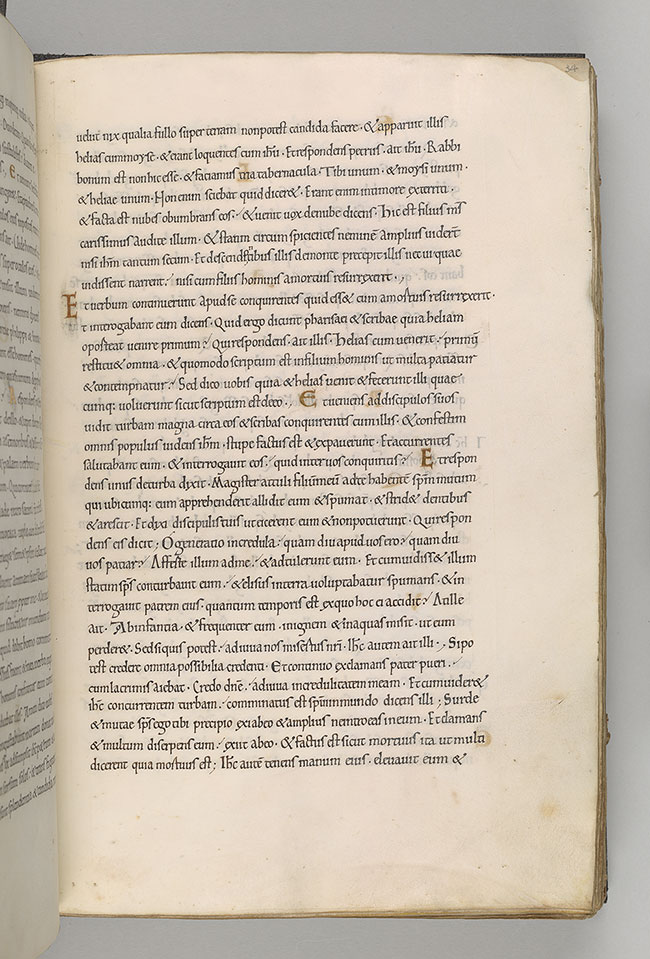 24
uelut nix qualia fullo super terram nonpotest candida facere · & apparuit illis
helias cummoyse · & erant loquentes cum ihu · Et respondens petrus · ait ihu · Rabbi
bonum est nos hic esse · & faciamus tria tabernacula · Tibi unum · & moysi unum ·
& heliae unum · Non enim sciebat quid dicer& · Erant enim intimore exterriti ·
& facta est nubes obumbrans eos · & uenit uox denube dicens · hic est filius ms
carissimus audite illum · & statim circum spicientes neminē amplius uiderūt
nisi ihm tantum secum · Et descendētibus illis demonte precepit illis ne cui quae
uidissent narrent · nisi cum filius hominis amortuis resurrexerit ·
Et uerbum continuerunt apud se conquirentes quid ess& cum amortuis resurrexerit ·
t interrogabant eum dicens · Quid ergo dicunt pharisaei & scribae quia heliam
oporteat uenire primum · Qui respondens · ait illis · helias cum uenerit · primū
restitu& omnia · & quomodo scriptum est infilium hominis ut multa patiatur
& contempnatur · Sed dico uobis quia & helias uenit & fecerunt illi quae
cumq; uoluerunt sicut scriptum est deeo · Et ueniens addiscipulos suos
uidit turbam magna circa eos & scribas conquirentes cum illis · & confestim
omnis populus uidens ihm · stupefactus est & expauerunt · Et accurrentes
salutabant eum · & interrogauit eos · quid inter uos conquiritis · Et respon
dens unus deturba dixit · Magister attuli filiū meū adte habentē spm mutum
qui ubicumq: eum apprehenderit allidit eum & spumat · & strid& dentibus
& arescit · Et dixi discipulis tuis ut eicerent eum & nonpotuerunt · Qui respon
dens eis dicit ; O generatio incredula · quam diu apud uos ero · quam diu
uos patiar · Afferte illum adme · & adtulerunt eum · Et cum uidiss& illum
statim sps conturbauit eum · & elisus interra uoluptabatur spumans · & in
terrogauit patrem eius · quantum temporis est exquo hoc ei accidit · At ille
ait · Abinfantia · & frequenter eum · inignem & inaquas misit · ut eum
perder& · Sed siquis potest · adiuua nos misertus nri · Ihc autem ait illi · Sipo
test credere omnia possibilia credenti · Et continuo exclamans pater pueri ·
cumlacrimis aiebat · Credo dne · adiuua incredulitatem meam · Et cum uider&
ihc concurrentem turbam · comminatus est spūi inmundo dicens illi ; Surde
& mutae sps ego tibi precipio exiabeo & amplius neintroeas in eum · Et clamans
& multum discerpens eum · exiit abeo · & factus est sicut mortuus ita ut multi
dicerent quia mortuus est ; Ihc autē tenens manum eius · eleuauit eum &